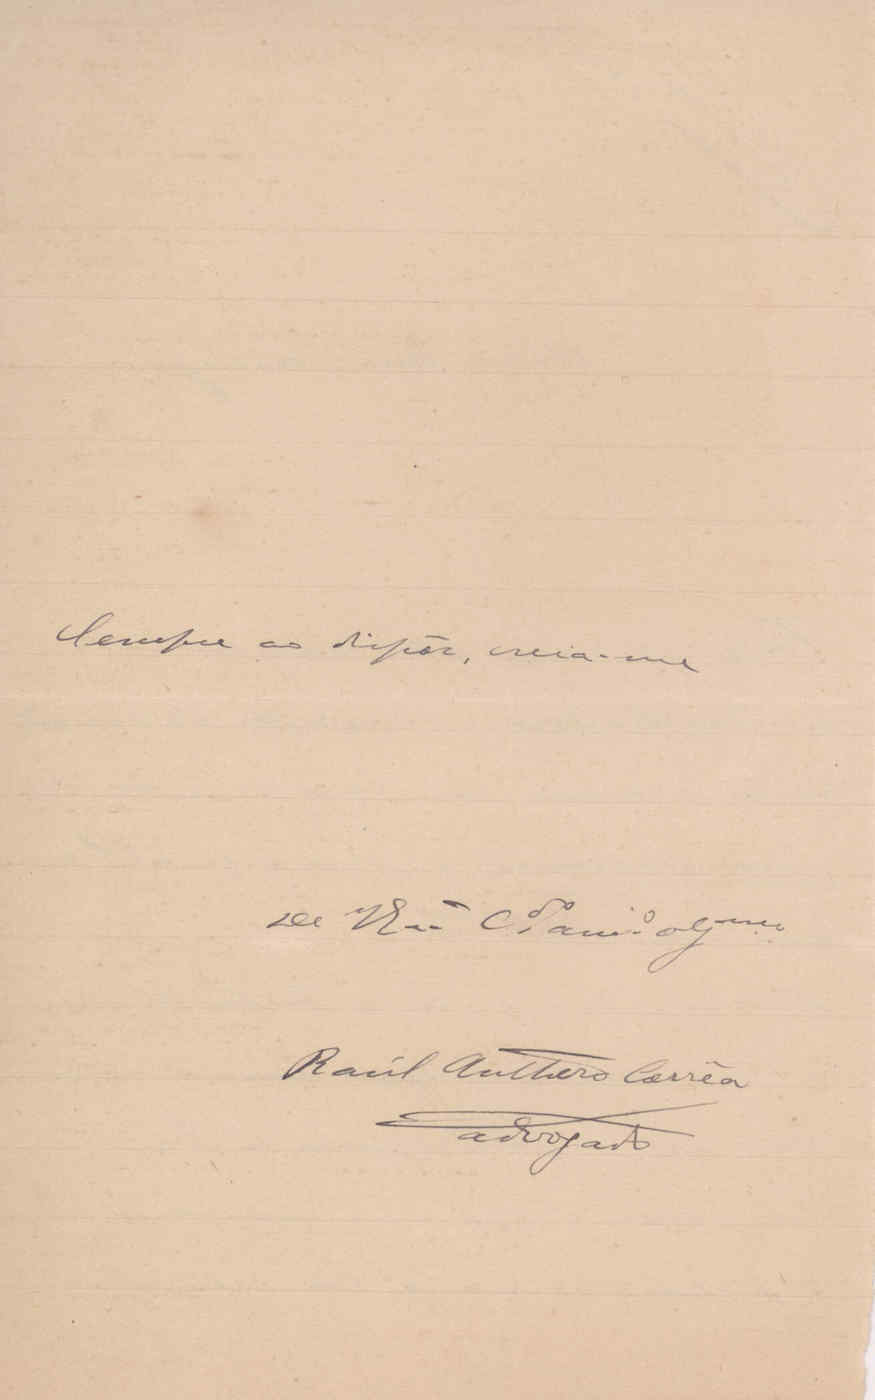 Sempre ao dispôr, creia-me
De V. Exª C.do am.o obg.mo
Raúl Anthero Corrêa
advogado